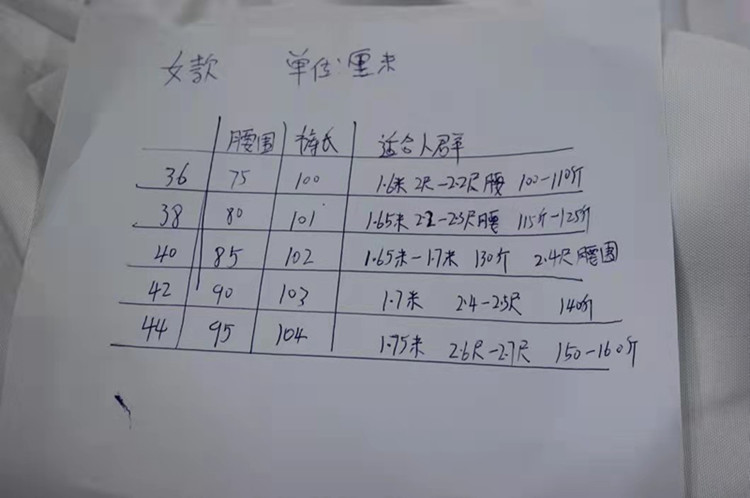 女款 单位:厘米
腰围 裤长 适合人群
36 75 100 1.6米 2尺-2.2尺腰 100-110斤
38 80 101 1.65米 2.2-2.3尺腰 115斤-125斤
40 85 102 1.65米-1.7米 130斤 2.4尺腰围
42 90 103 1.7米 2.4-2.5尺 140斤
44 95 104 1.75米 2.6尺-2.7尺 150-160斤